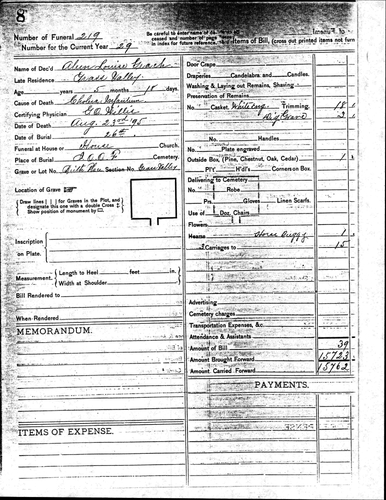 8
Number of Funeral 219
Number for the Current Year 29
Be careful to enter name of de-
ceased and number of page
in index for future reference.
Items of Bill, (cross out printed items not furn
Name of Dec'd Alice Louise Crach
Late Residence Grass Valley
Age years 5 months 18 days
Cause of Death Cholera Infantum
Certifying Physician
Date of Death Aug. 23rd '95
26th
Funeral at House or House Church.
Place of Burial I.O.O.F Cemetery.
Grave or Lot No. Section No. Grass Valley
Location of Grave
Draw lines for Graves in the Plot, and
designate this one with a double Cross
Show position of monument by
Inscription
on Plate.
Measurement. Length to Heel feet in.
Width at Shoulder
Bill Rendered to
When Rendered
MEMORANDUM.
ITEMS OF EXPENSE.
Door Crape
Draperies Candelabra and Candles.
Washing & Laying out Remains, Shaving
Preservation of Remains
No. Casket, White Trimming. 18
Dig Grave 2
No. Handles
Plate engraved
Outside Box (Pine, Chestnut, Oak, Cedar) 1
PlY H'd'l's Corners on Box.
Delivering to Cemetery
No. Robe
Prs Gloves Linen Scarfs
Use of Doz. Chairs
Flowers
Buggy 1
3 Carriages to 15
Advertising
Cemetery charges
Transportation Expenses, &c.
Attendance & Assistants
Amount of Bill 39
Amount Brought Forward 15723
Amount Carried Forward 15762
PAYMENTS.